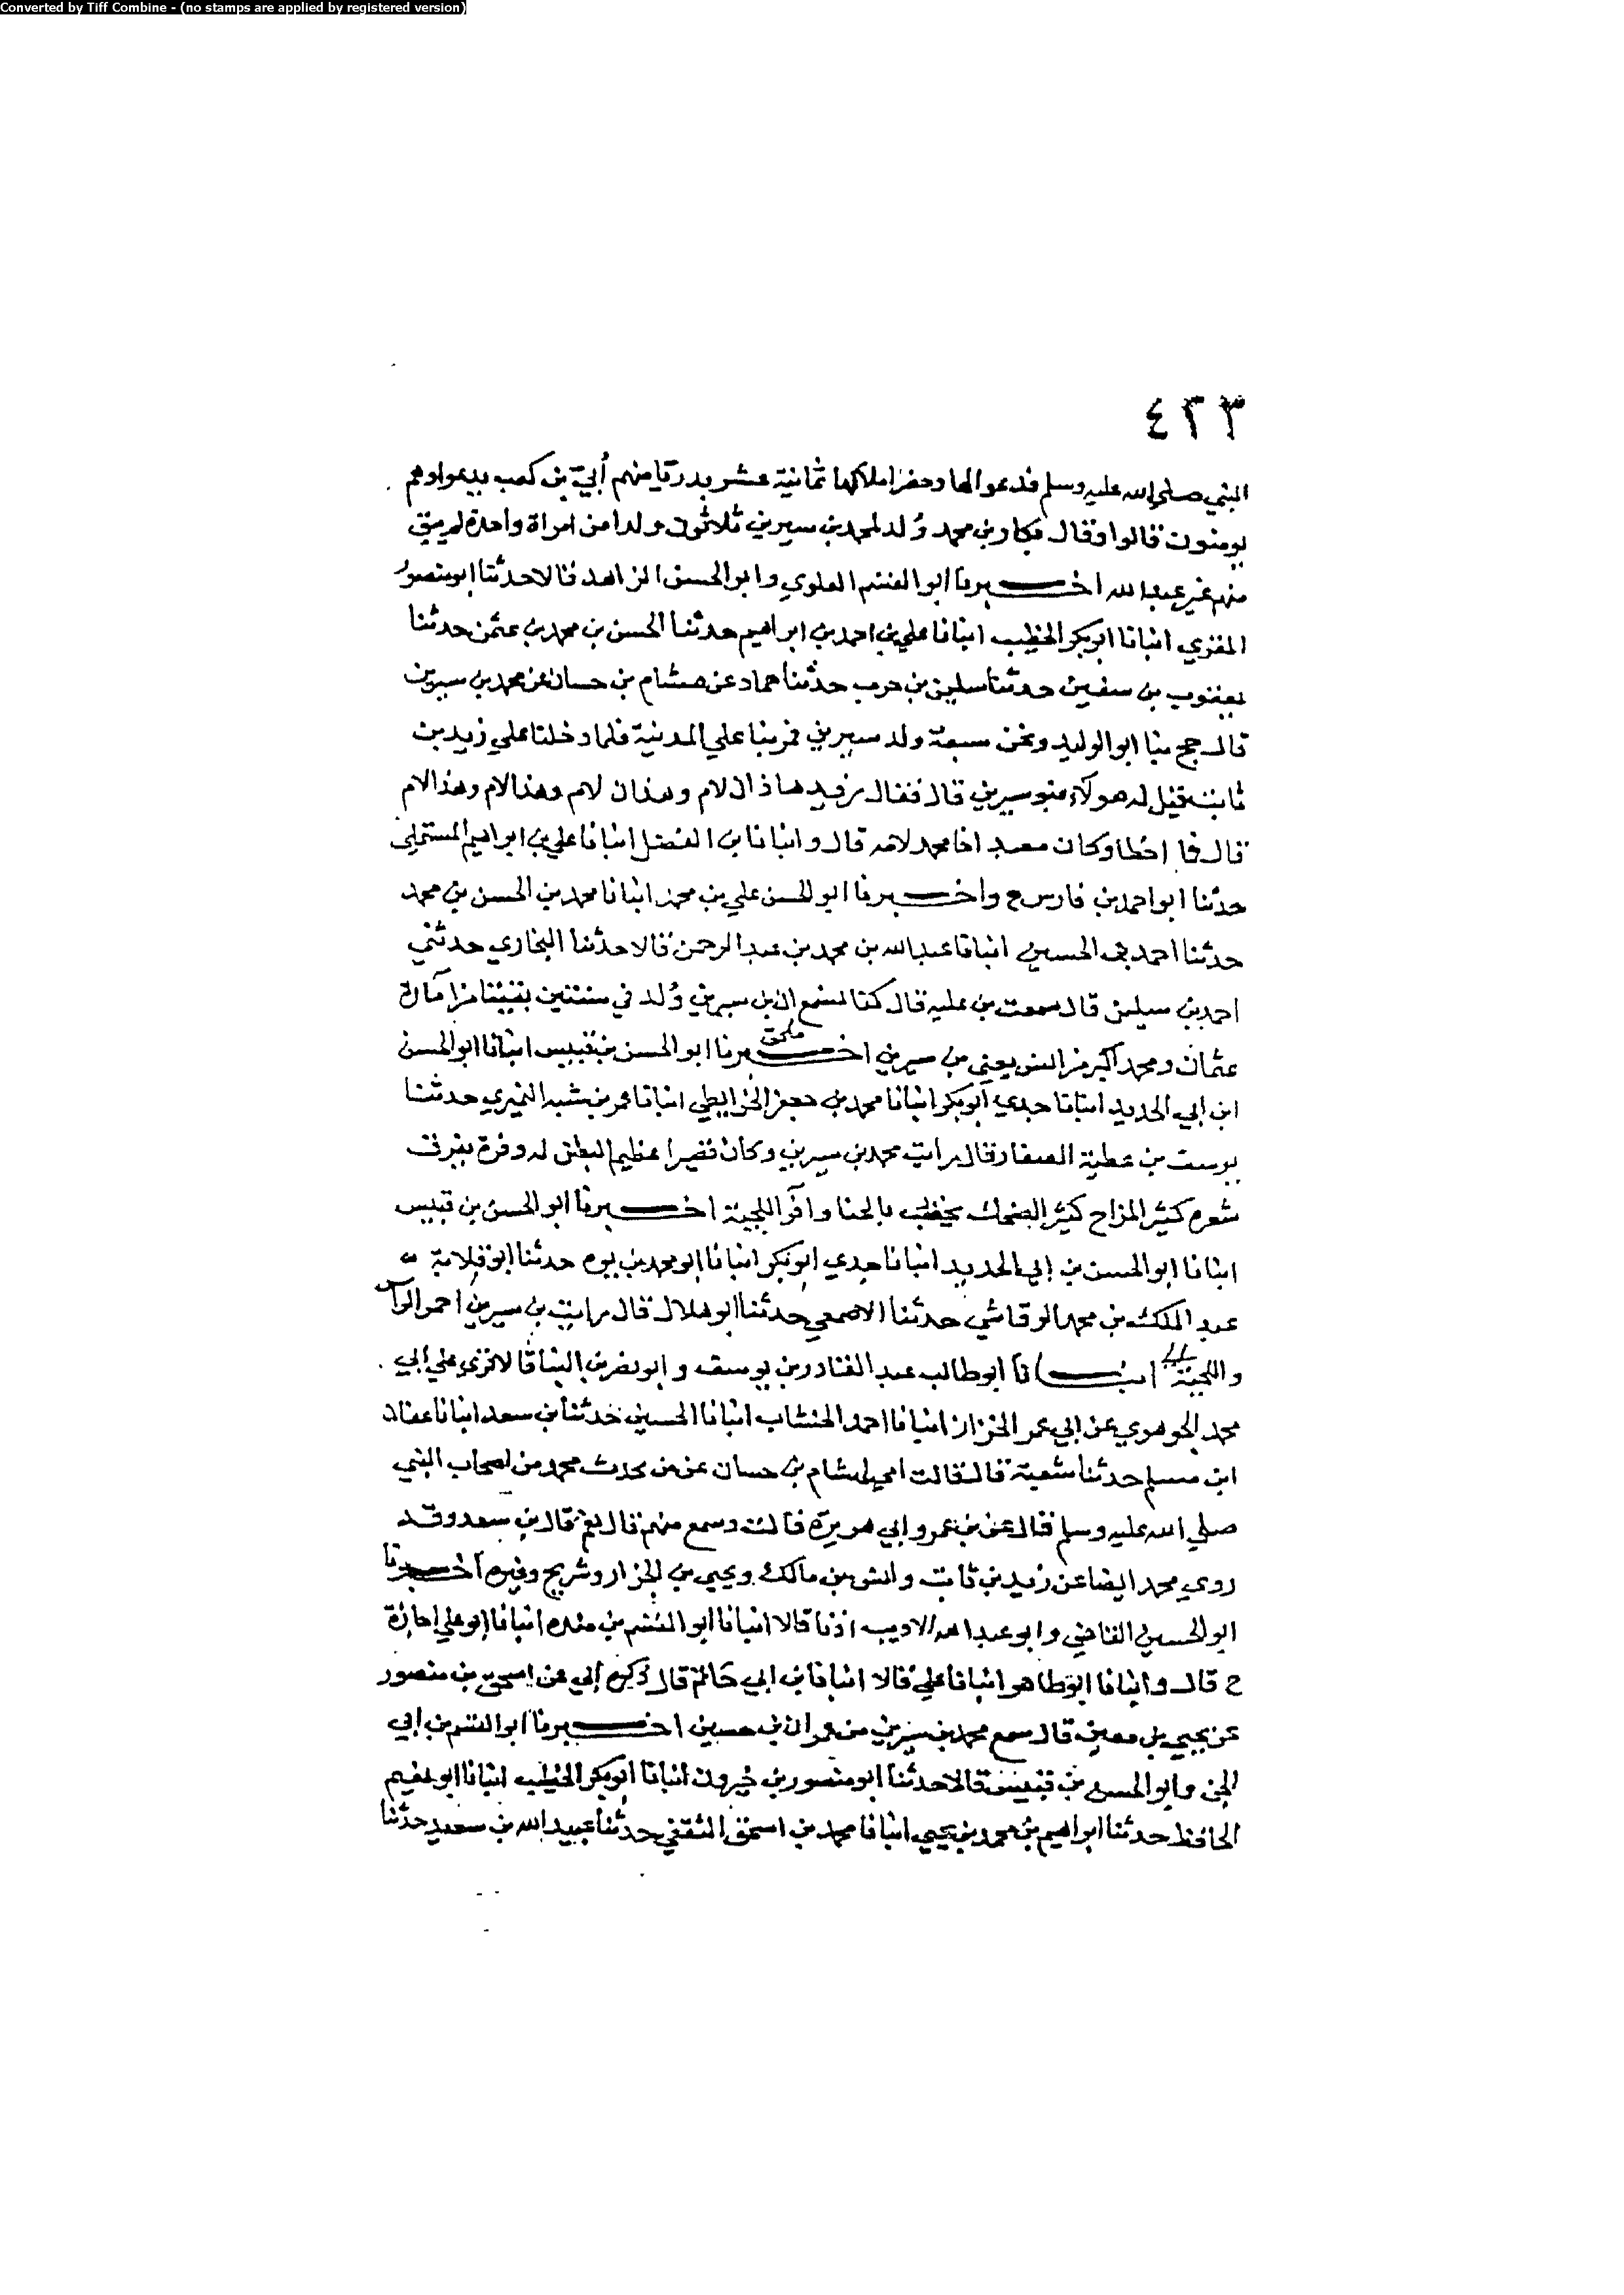 Converted by Tiff Combine - (no stamps are applied by registered version)
٤٢٣
النبي صلي الله عليه وسلم فدعوا لها وحضر املاكها ثمانية عشر بدريا منهم أبيّ بن كعب يدعوا وهم
يومنون قالوا وقال بكار بن محمد وُلد لمحمد بن سيرين ثلاثون ولدا من امراة واحدة لم يبق
منهم غير عبد الله اخبرنا ابو القسم العلوي وابو الحسن الزاهد قالا حدثنا ابو منصور
المقري انبانا ابو بكر الخطيب انبانا علي بن احمد بن ابراهيم حدثنا الحسن بن محمد بن عثمن حدثنا
يعقوب بن سفين حدثنا سليمن بن حرب حدثنا حماد عن هشام بن حسان عن محمد بن سيرين
قال حج بنا ابو الوليد ونحن سبعة ولد سيرين فمر بنا علي المدينة فلما دخلنا علي زيد بن
ثابت قيل له هولاء بنو سيرين قال فقال زيد هاذان لام وهذان لام وهذا لام وهذا لام
قال فما اخطا وكان معبد اخا محمد لامه قال وانبانا بن الفضل انبانا علي بن ابراهيم المستملي
حدثنا ابو احمد بن فارس ح واخبرنا ابو الحسن علي بن محمد انبانا محمد بن الحسن بن محمد
حدثنا احمد بن الحسين انبانا عبد الله بن محمد بن عبد الرحمن قالا حدثنا البخاري حدثني
احمد بن سليمن قال سمعت بن عليه قال كنا نسمع ان بن سيرين وُلد في سنتين بقيتا من امارة
عثمان ومحمد اكبر من انس يعني بن سيرين اخبرنا ملحق ابو الحسن بن قبيس انبانا ابو الحسن
ابن ابي الحديد انبانا جدي ابو بكر انبانا محمد بن جعفر الخرايطي انبانا عمر بن شبه النميري حدثنا
يوسف بن عطية الصفار قال رايت محمد بن سيرين وكان قصيرا عظيم البطن له وفرة يفرق
شعره كثير المزاح كثير الضحك يخضب بالحنا وافر اللحية اخبرنا ابو الحسن بن قبيس
انبانا ابو الحسن بن ابي الحديد انبانا جدي ابو بكر انبانا ابو محمد بن حدثنا ابو قلابة
عبد الملك بن محمد الرقاشي حدثنا الاصمعي حدثنا ابو هلال قال رايت بن سيرين احمر الراس
واللحية انبانا ابو طالب عبد القادر بن يوسف وابو نصر بن البنا قالا قرئ علي أبي
محمد الجوهري عن ابي عمر الخزاز انبانا احمد الخشاب انبانا الحسين حدثنا بن سعد انبانا عفان
ابن مسلم حدثنا شعبة قال قالت امي لهشام بن حسان عن من يحدث محمد من اصحاب النبي
صلي الله عليه وسلم فقال عن بن عمر وابي هريرة قالت وسمع منهم قال نعم قال بن سعد وقد
روي محمد ايضا عن زيد بن ثابت وانس بن مالك ويحيي بن الجزار وشريح وغيره اخبرنا
ابو الحسين القاضي وابو عبد الله الاديب اذنا قالا انبانا ابو القسم بن منده انبانا ابو علي اجازة
ح قال وانبانا ابو طاهر انبانا علي قالا انبانا بن ابي حاتم قال ذكره ابي عن اسحق بن منصور
عن يحيي بن معين قال سمع محمد بن سيرين من عمران بن حصين اخبرنا ابو القسم بن ابي
الجن وابو الحسن بن قبيس قالا حدثنا ابو منصور بن خيرون انبانا ابو بكر الخطيب انبانا ابو نعيم
الحافظ حدثنا ابراهيم بن محمد بن يحيي انبانا محمد بن اسحق الثقفي حدثنا عبيد الله بن سعيد حدثنا